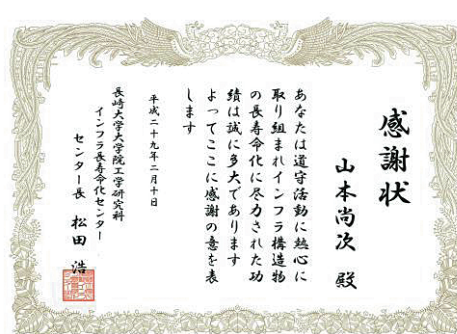 感謝状
山本尚次 殿
あなたは道守活動に熱心に
取り組まれインフラ構造物
の長寿命化に尽力された功
績は誠に多大であります
よってここに感謝の意を表
します
平成二十九年二月十日
長崎大学大学院工学研究科
インフラ長寿命化センター
センター長 松田 浩